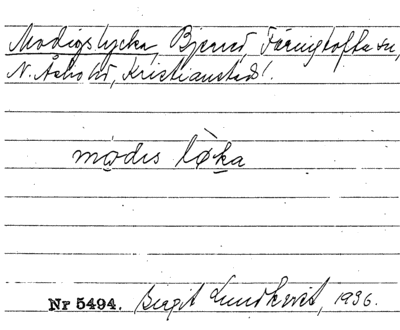 Modigslycka, Bjernö, Färingtofta sn,
N. Åsbo hd, Kristianstads l.
mo̤dis lø̀ka
Nr 5494. Birgit Lundkvist, 1936.